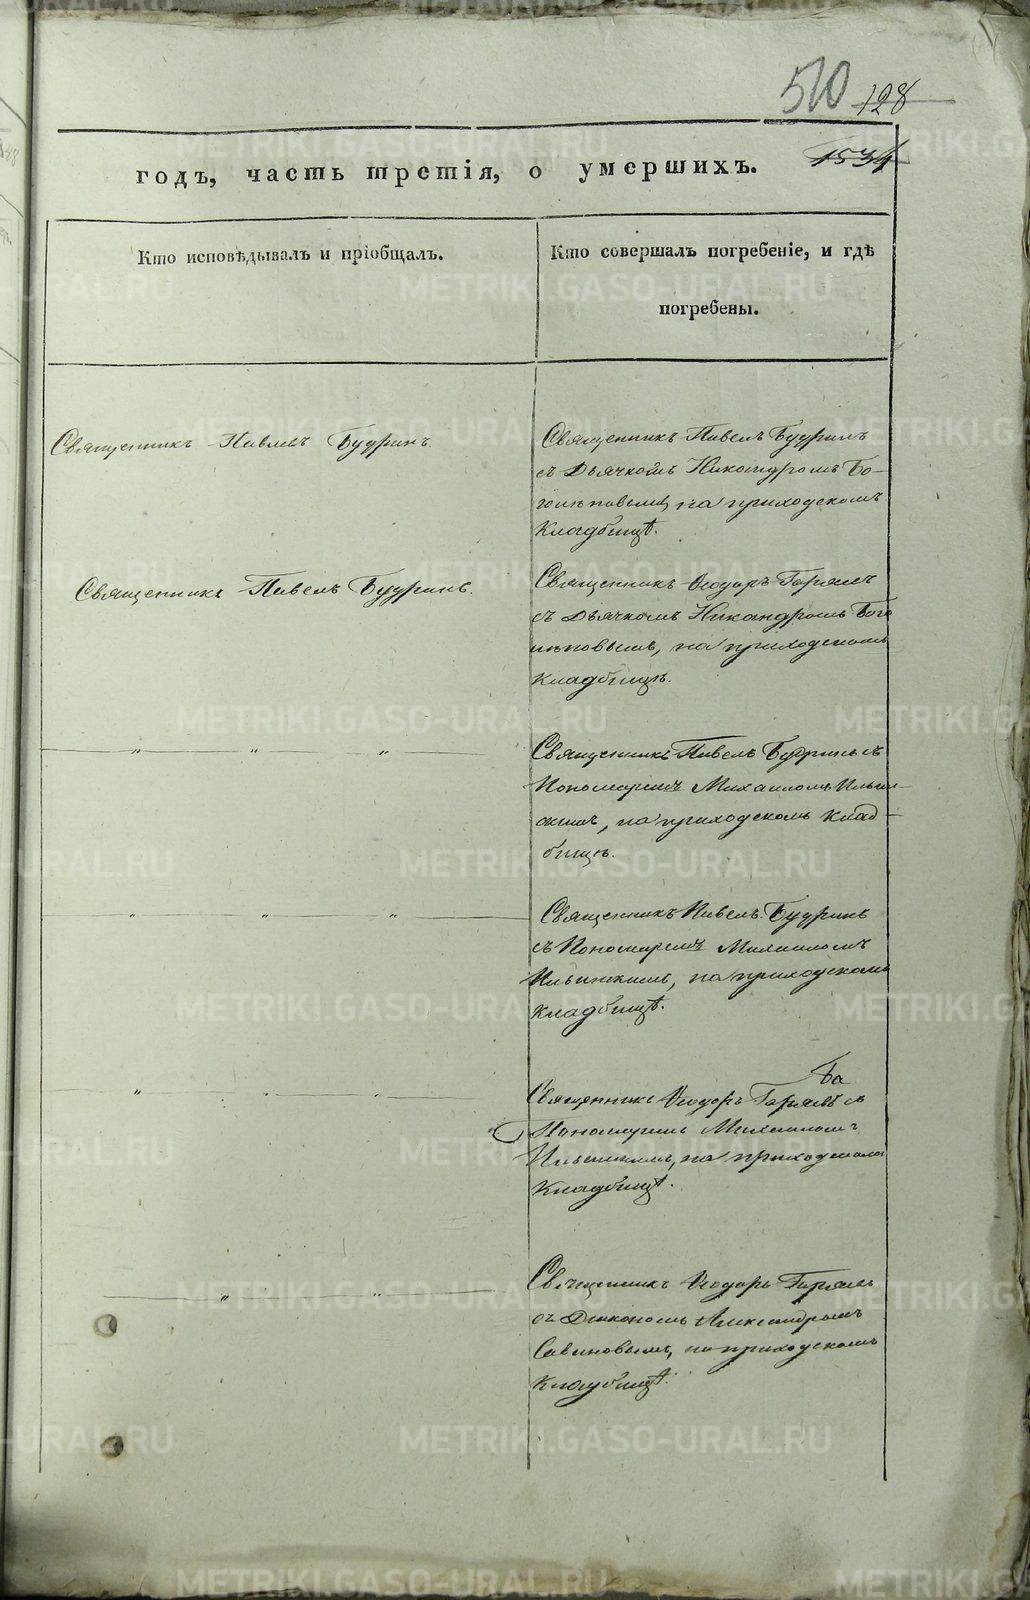 510 128
1534
годъ, часть третія, о умершихъ.
Кто исповѣдывалъ и пріобщалъ.
Кто совершалъ погребеніе, и гдѣ
погребены.
Священникъ Павелъ Будринъ
Священникъ Павелъ Будринъ
съ Дьячкомъ Никандромъ Бо-
на приходскомъ
Кладбищѣ.
Священникъ Павелъ Будринъ.
Священникъ Ѳеодоръ
съ Дьячкомъ Никандромъ
на приходскомъ
кладбищѣ.
" " "
Священникъ Павелъ Будринъ съ
Пономаремъ Михаиломъ Ильин-
скимъ, на приходскомъ клад-
бищѣ.
" " "
Священникъ Павелъ Будринъ
съ Пономаремъ Михаиломъ
Ильинскимъ, на приходскомъ
кладбищѣ.
" " "
Священникъ Ѳеодоръ съ
Пономаремъ Михаиломъ
Ильинскимъ, на приходскомъ
Кладбищѣ.
" "
Священникъ Ѳеодоръ
съ Діакономъ Александромъ
Савиновымъ, на приходскомъ
Кладбищѣ.
METRIKI.GASO-URAL.RU